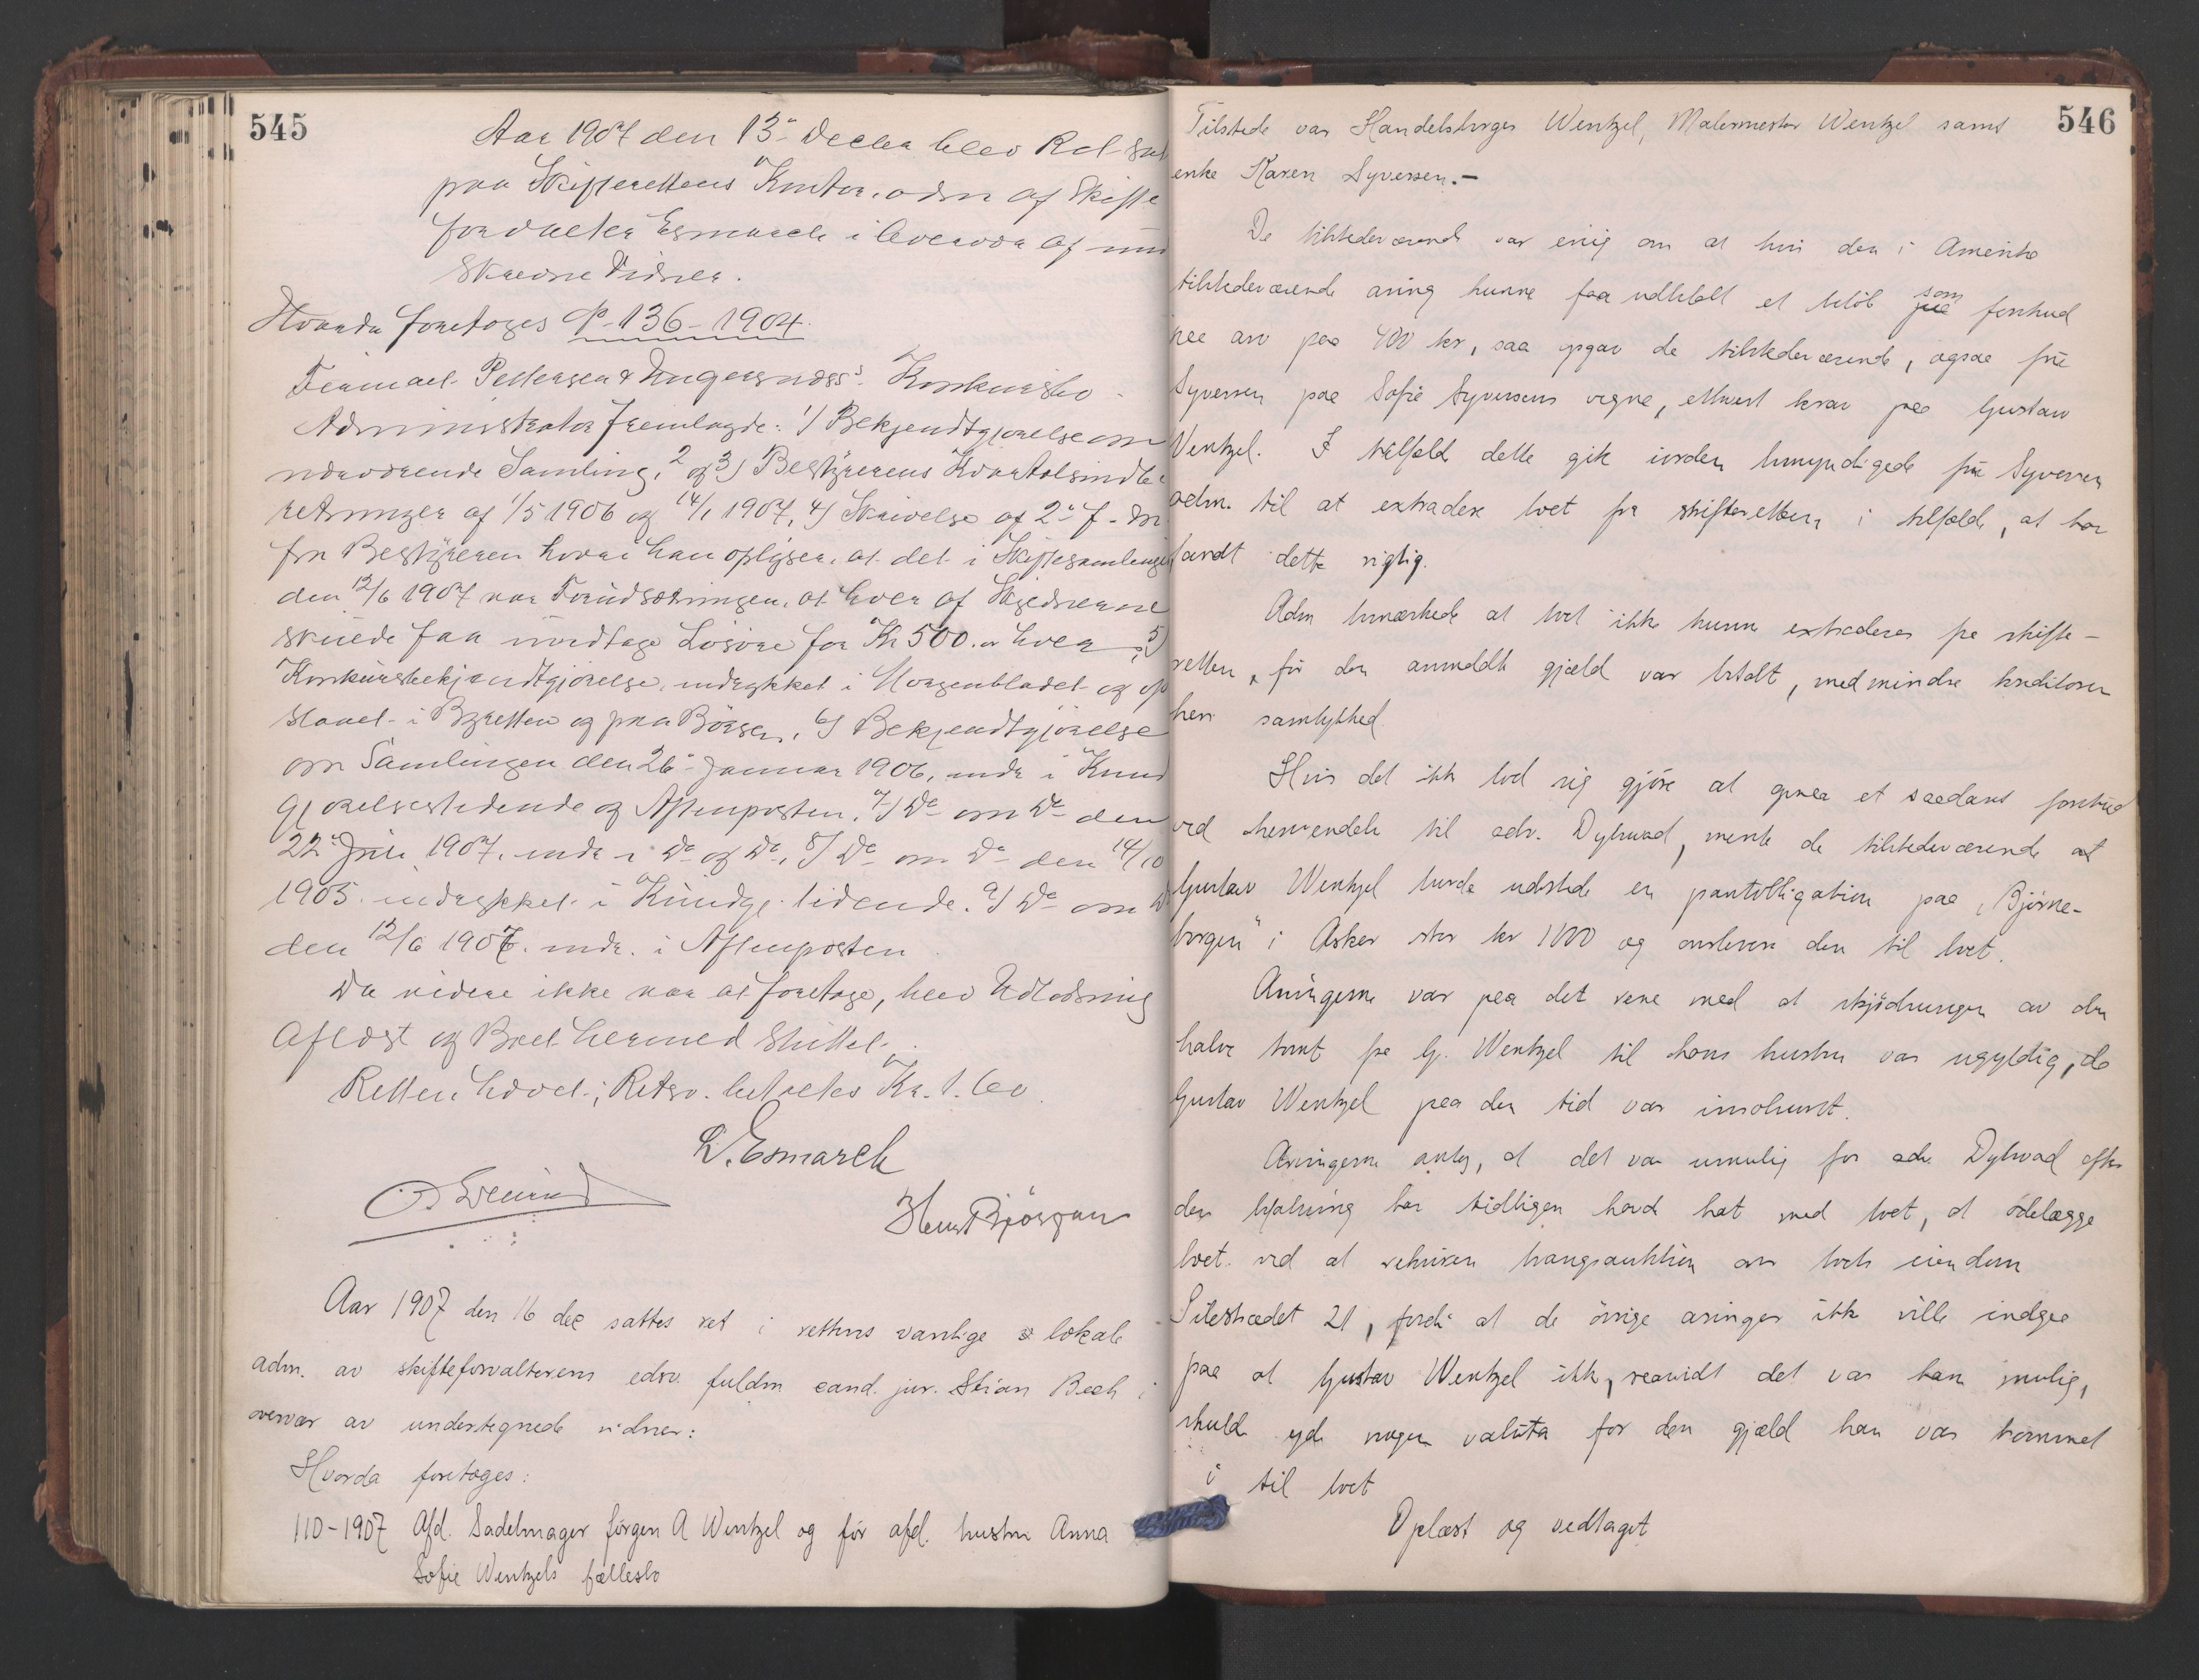 545
Aar 1907 den 13de Decbr blev Ret sat
paa Skifterettens Kontor, adm af Skifte
forvalter Esmarch i Overvær af und
skrevne Vidner.
Hvorda foretoges P-136-1904.
Firmaet Pettersen & Ungersness's Konkursbo
Administrator fremlagde: 1/ Bekjendtgjørelse om
nærværende Samling, 2 og 3) Bestyrerens Kvartalsindbe
retninger af 1/5 1906 og 14/1 1907, 4) Skrivelse af 2de f. M
fra Bestyreren hvori han oplyser, at det i Skiftesamlingen
den 12/6 1907 var Forudsætningen, at hver af
skulde faa modtage Løsøre for Kr 500.- hver, 5)
Konkursbekjendtgjørelse, indrykket i Morgenbladet og op
slaaet i Byretten og paa Börsen, 6) Bekjendtgjörelse
om Samlingen den 26de Januar 1906, indr i Kund
gjørelsestidende og Aftenposten, 7) Do om Do den
22de Juli 1907, indr i Do og Do, 8) Do om Do den 14/10
1905 indrykket i Kundgj. tidende. 9) Do om D
den 12/6 1907. indr. i Aftenposten.
Da videre ikke var at foretage, blev Udlodning
Aflæst og Boet hermed Sluttet.
Retten hævet; Retsv. betaltes Kr. 1.60.
L. Esmarch
Henr Bjørgan
Aar 1907 den 16 dec sattes ret i rettens vanlige lokale
adm. av skifteforvalterens edsv. fuldm cand. jur. Stian Bech i
overvær av undertegnede vidner:
Hvorda foretoges:
110-1907 Afd. Sadelmager Jörgen A Wentzel og før afd. hustru Anna
Sofie Wentzels fællesbo
546
Tilstede var Handelsborger Wentzel, Malermester Wentzel samt
enke Karen Syversen.-
De tilstedeværende var enig om at hvis den i Amerika
tilstedeværende arving kunne faa utbetalt et beløb som paa forskud
paa arv paa 400 kr, saa opgav de tilstedeværende, ogsaa fru
Syversen paa Sofie Syversens vegne, ethvert krav paa Gustav
Wentzel. I tilfælde dette gik iorden bemyndigede fru Syversen
adm. til at extradere boet fra skifteretten i tilfælde, at han
fandt dette rigtig.
Adm bemærkede at boet ikke kunne extraderes fra skifte-
retten, før den anmeldte gjæld var betalt, medmindre kreditoren
heri samtykked.
Hvis det ikke lod sig gjöre at opnaa et saadant forskud
ved henvendelse til adv. Dybwad, mente de tilstedeværende at
Gustav Wentzel burde udstede en pantobligation paa „Bjørne-
borgen" i Asker stor kr 1000 og overlevere den til boet.
Arvingerne var paa det rene med at skjödningen av den
halve tomt fra G. Wentzel til hans hustru var ugyldig, da
Gustav Wentzel paa den tid var insolvent.
Arvingerne antog, at det var umulig for adv. Dybwad efter
den befatning han tidligere havde hat med boet, at ödelægge
boet ved at rekvirere tvangsauktion over boets eiendom
Pilestrædet 21, fordi at de övrige arvinger ikke ville indgaa
paa at Gustav Wentzel ikke, saavidt det var ham mulig,
skulde yde nogen valuta for den gjæld han var kommet
i til boet
Oplæst og vedtaget